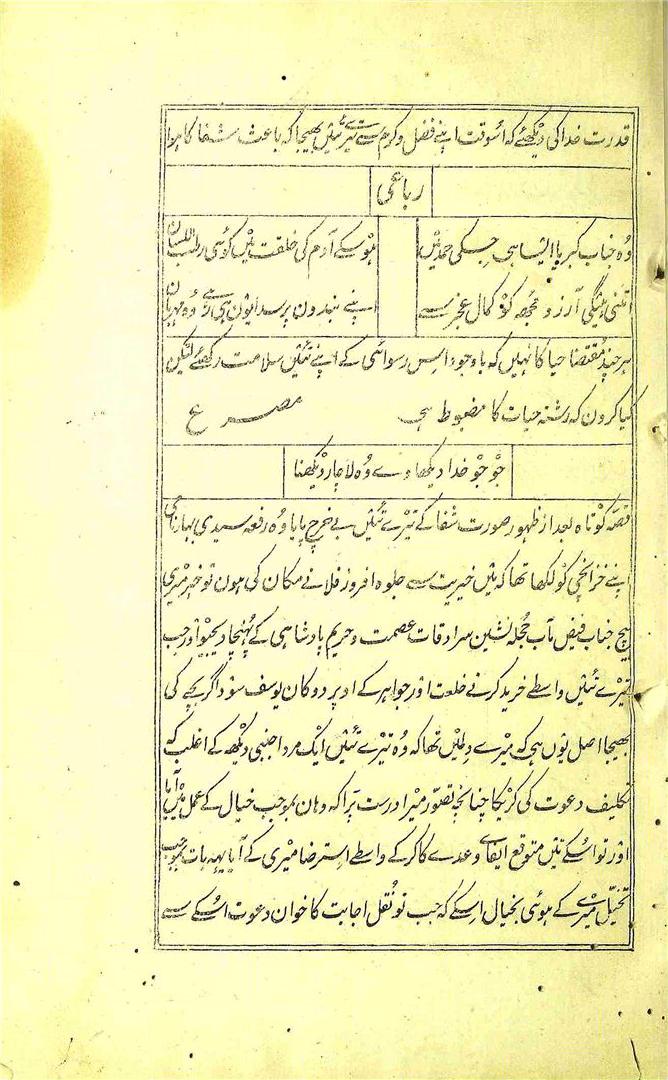 قدرت خدا کی دیکھئے کہ اسوقت اپنے فضل و کرم سے تیرے تئیں بھیجا کہ باعث شفا کا ہوا
رباعی
وہ جناب کبریا ایسا ہی جسکی حمد میں
ہو سکے آدم کی خلقت میں کوئی رطب اللسان
اتنی ہیگی آرزو مجھہ کو کمال عجز سے
اپنے بندون پر سدا یون ہی رہے وہ مہربان
ہر چند مقتضا حیا کا نہیں کہ باوجود اس رسوائی کے اپنے تئیں سلامت رکھئے لیکن
کیا کرون کہ رشتہ حیات کا مضبوط ہی مصرع
جو جو خدا دیکھاوے وہ لاچار دیکھنا
قصہ کوتاہ بعد از ظہور صورت شفا کے تیرے تئیں بے خرچ پایا وہ رقعہ سیدی بہار نامی
اپنے خزانچی کو لکھا تھا کہ میں خیریت سے جلوہ افروز فلانے مکان کی ہون تو خبر میری
بیچ جناب فیض مآب حجلہ نشین سرادقات عصمت و حریم بادشاہی کے پہنچا دیجیو اور جب
تیرے تئیں واسطے خرید کرنے خلعت اور جواہر کے اوپر دوکان یوسف سوداگر بچے کی
بھیجا اصل یون ہی کہ میرے دلمیں تھا کہ وہ تیرے تئیں ایک مرد اجنبی دیکھ کے اغلب کہ
تکلیف دعوت کی کریگا چنانچہ تصور میرا درست پڑا کہ وہان بموجب خیال کے عمل میں آیا
اور تو اسکے تئیں متوقع ایفائے وعدے کا کر کے واسطے استرضا میری کے آیا یہہ بات بموجب
تخیل میرے کے ہوئی بخیال اسکے کہ جب تو نقل اجابت کا خوان دعوت اسکے سے